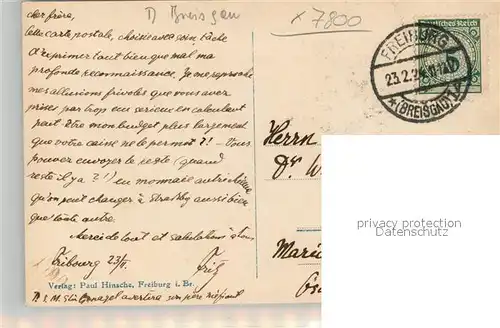 D Breisgau
x 7800
Deutsches Reich
FREIBURG
23.2.24
* (BREISGAU)
cher frère,
cette carte postale, choisie avec soin, tâche
d'exprimer tout bien que mal ma
profonde reconnaissance. Je me reproche
mes allusions frivoles que vous avez
prises par trop au sérieux en calculant
peut être mon budget plus largement
que votre caisse ne le permet?! - Vous
pouvez envoyer le reste (quand
reste il y a?!) en monnaie autrichienne
qu'on peut changer à Strasbg aussi bien
que toute autre.
Merci de tout et salutations à tous
Fribourg 23/II. Fritz
Verlag: Paul Hinsche, Freiburg i. Br.
avertira son père
Herrn
Dr. W
Marie
privacy protection
www.ansichtskarten-center.de